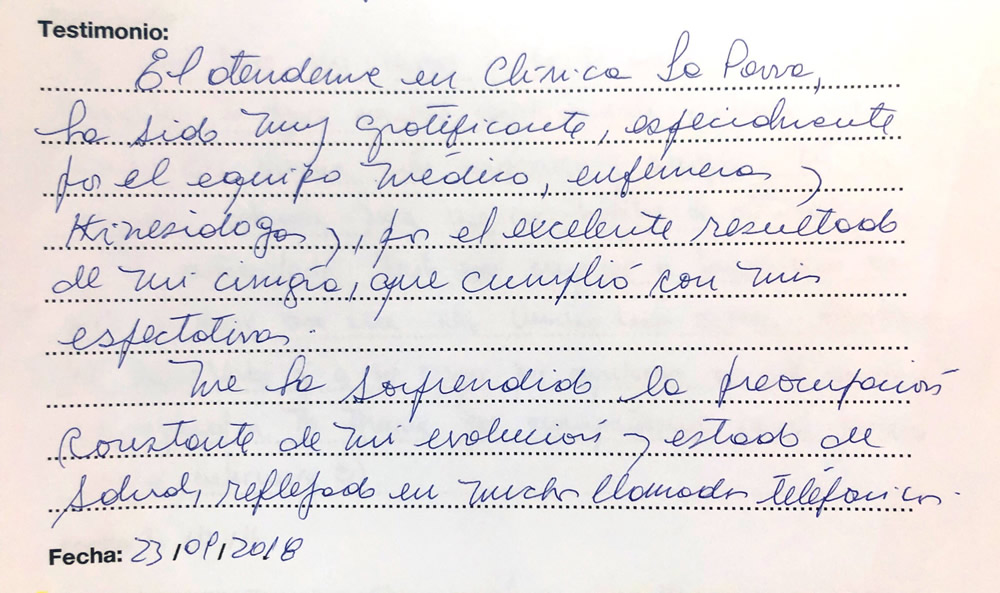 Testimonio:
El atenderme en Clínica La Parra,
ha sido muy gratificante, especialmente
por el equipo médico, enfermeras y
Kinesiólogas y, por el excelente resultado
de mi cirugía, que cumplió con mis
espectativas.
Me ha sorprendido la preocupación
constante de mi evolución y estado de
salud, reflejado en muchos llamados telefónicos.
Fecha: 23/01/2018